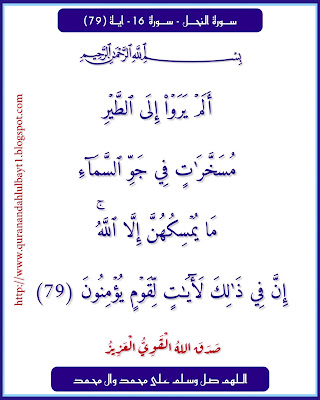 سورة النحل - سورة 16 - آية (79)
بِسْمِ اللَّهِ الرَّحْمَٰنِ الرَّحِيمِ
أَلَمْ يَرَوْا۟ إِلَى ٱلطَّيْرِ
مُسَخَّرَٰتٍ فِى جَوِّ ٱلسَّمَآءِ
مَا يُمْسِكُهُنَّ إِلَّا ٱللَّهُ ۚ
إِنَّ فِى ذَٰلِكَ لَءَايَٰتٍ لِّقَوْمٍ يُؤْمِنُونَ (79)
صَدَقَ اللهُ الْقَوِيُّ الْعَزِيزُ
اللهم صل وسلم على محمد وال محمد
http://www.quranandahlulbayt1.blogspot.com